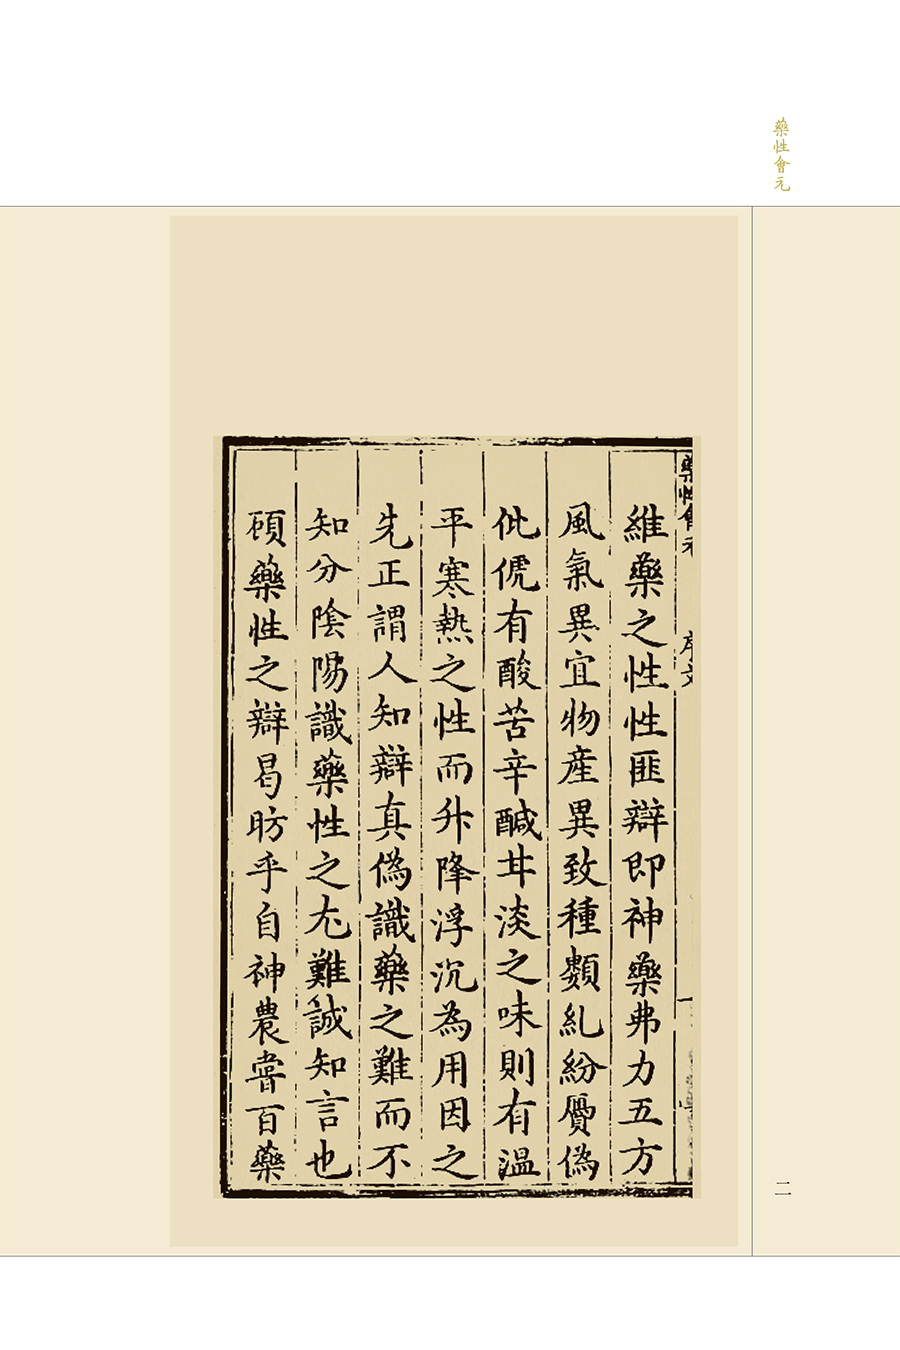 藥性會元
藥性會元
序文
維藥之性性匪辯即神藥弗力五方
風氣異宜物産異致種類糺紛贗偽
仳俿有酸苦辛醎甘淡之味則有溫
平寒熱之性而升降浮沉為用因之
先正謂人知辯真偽識藥之難而不
知分陰陽識藥性之尤難誠知言也
頋藥性之辯曷昉乎自神農甞百藥
二